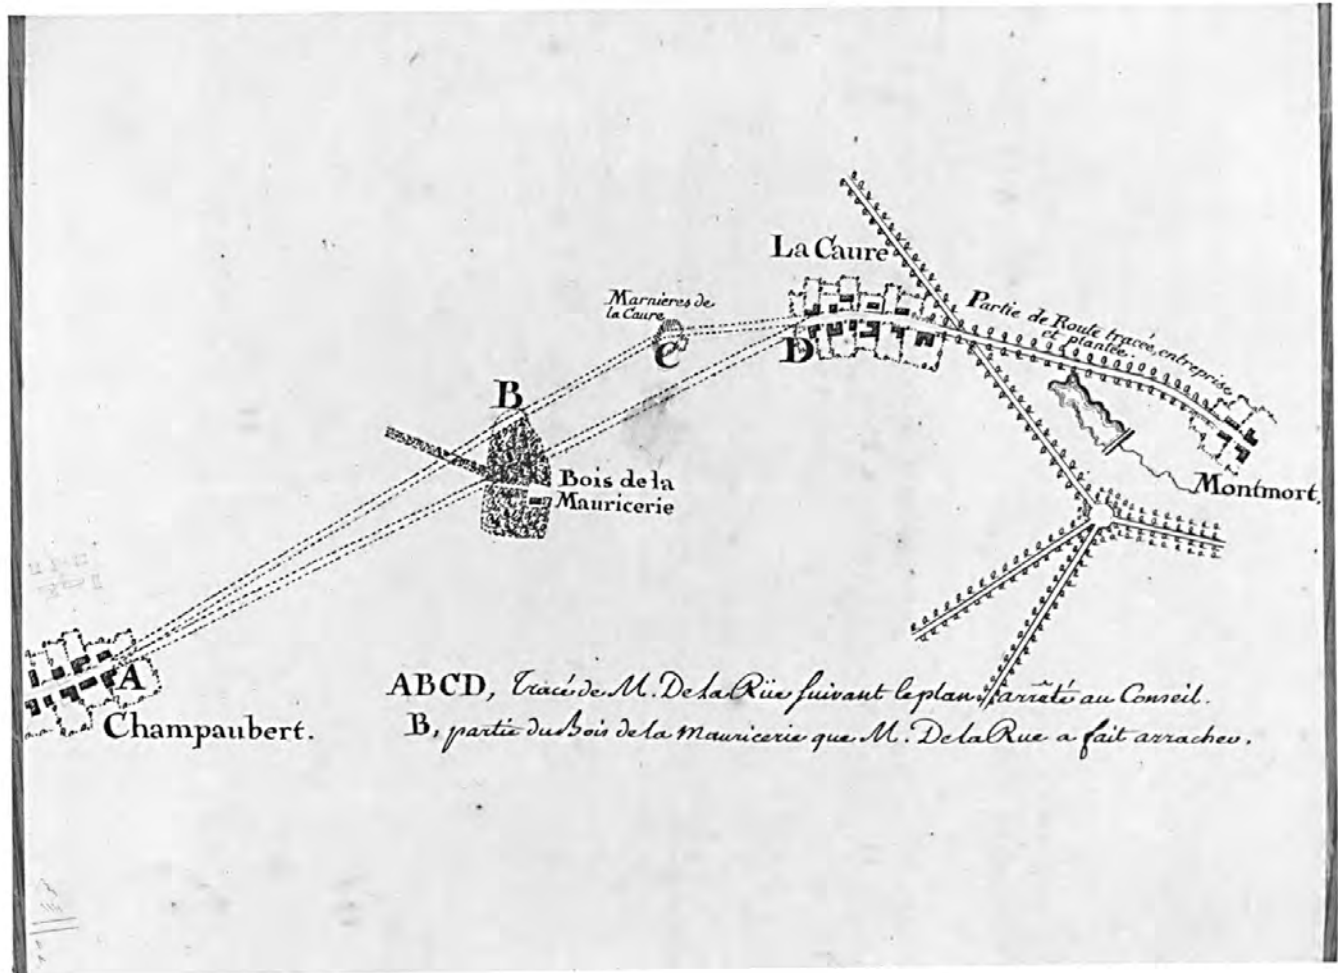 La Caure
Marnieres de
la Caure
Partie de Route tracée, entreprise
et plantée.
C
D
B
Bois de la
Mauricerie
Montmort.
A
Champaubert.
ABCD, Tracé de M. De La Rüe suivant le plan arrêté au Conseil.
B, partie du Bois de la Mauricerie que M. De la Rue a fait arracher.